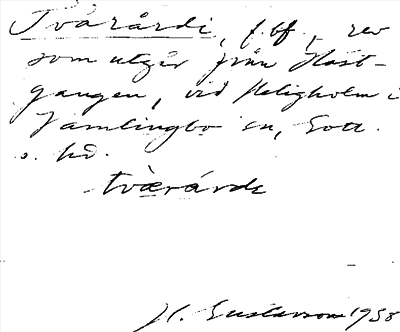 Tvärårdi, f. bf., rev
som utgår från Häst-
gangen, vid Heligholm i
Vamlingbo sn, Gotl.
s. hd.
tværárdi
H. Gustavson 1938